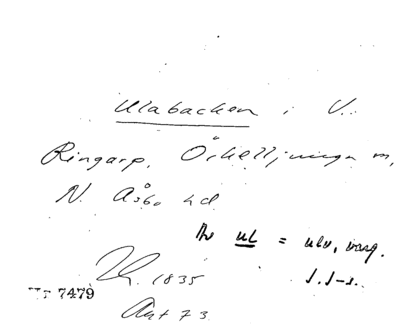 Ulabacken i V.
Ringarp, Örkelljunga m,
N. Åsbo hd
Av ul = ulv, varg.
1835
7479
Akt 73